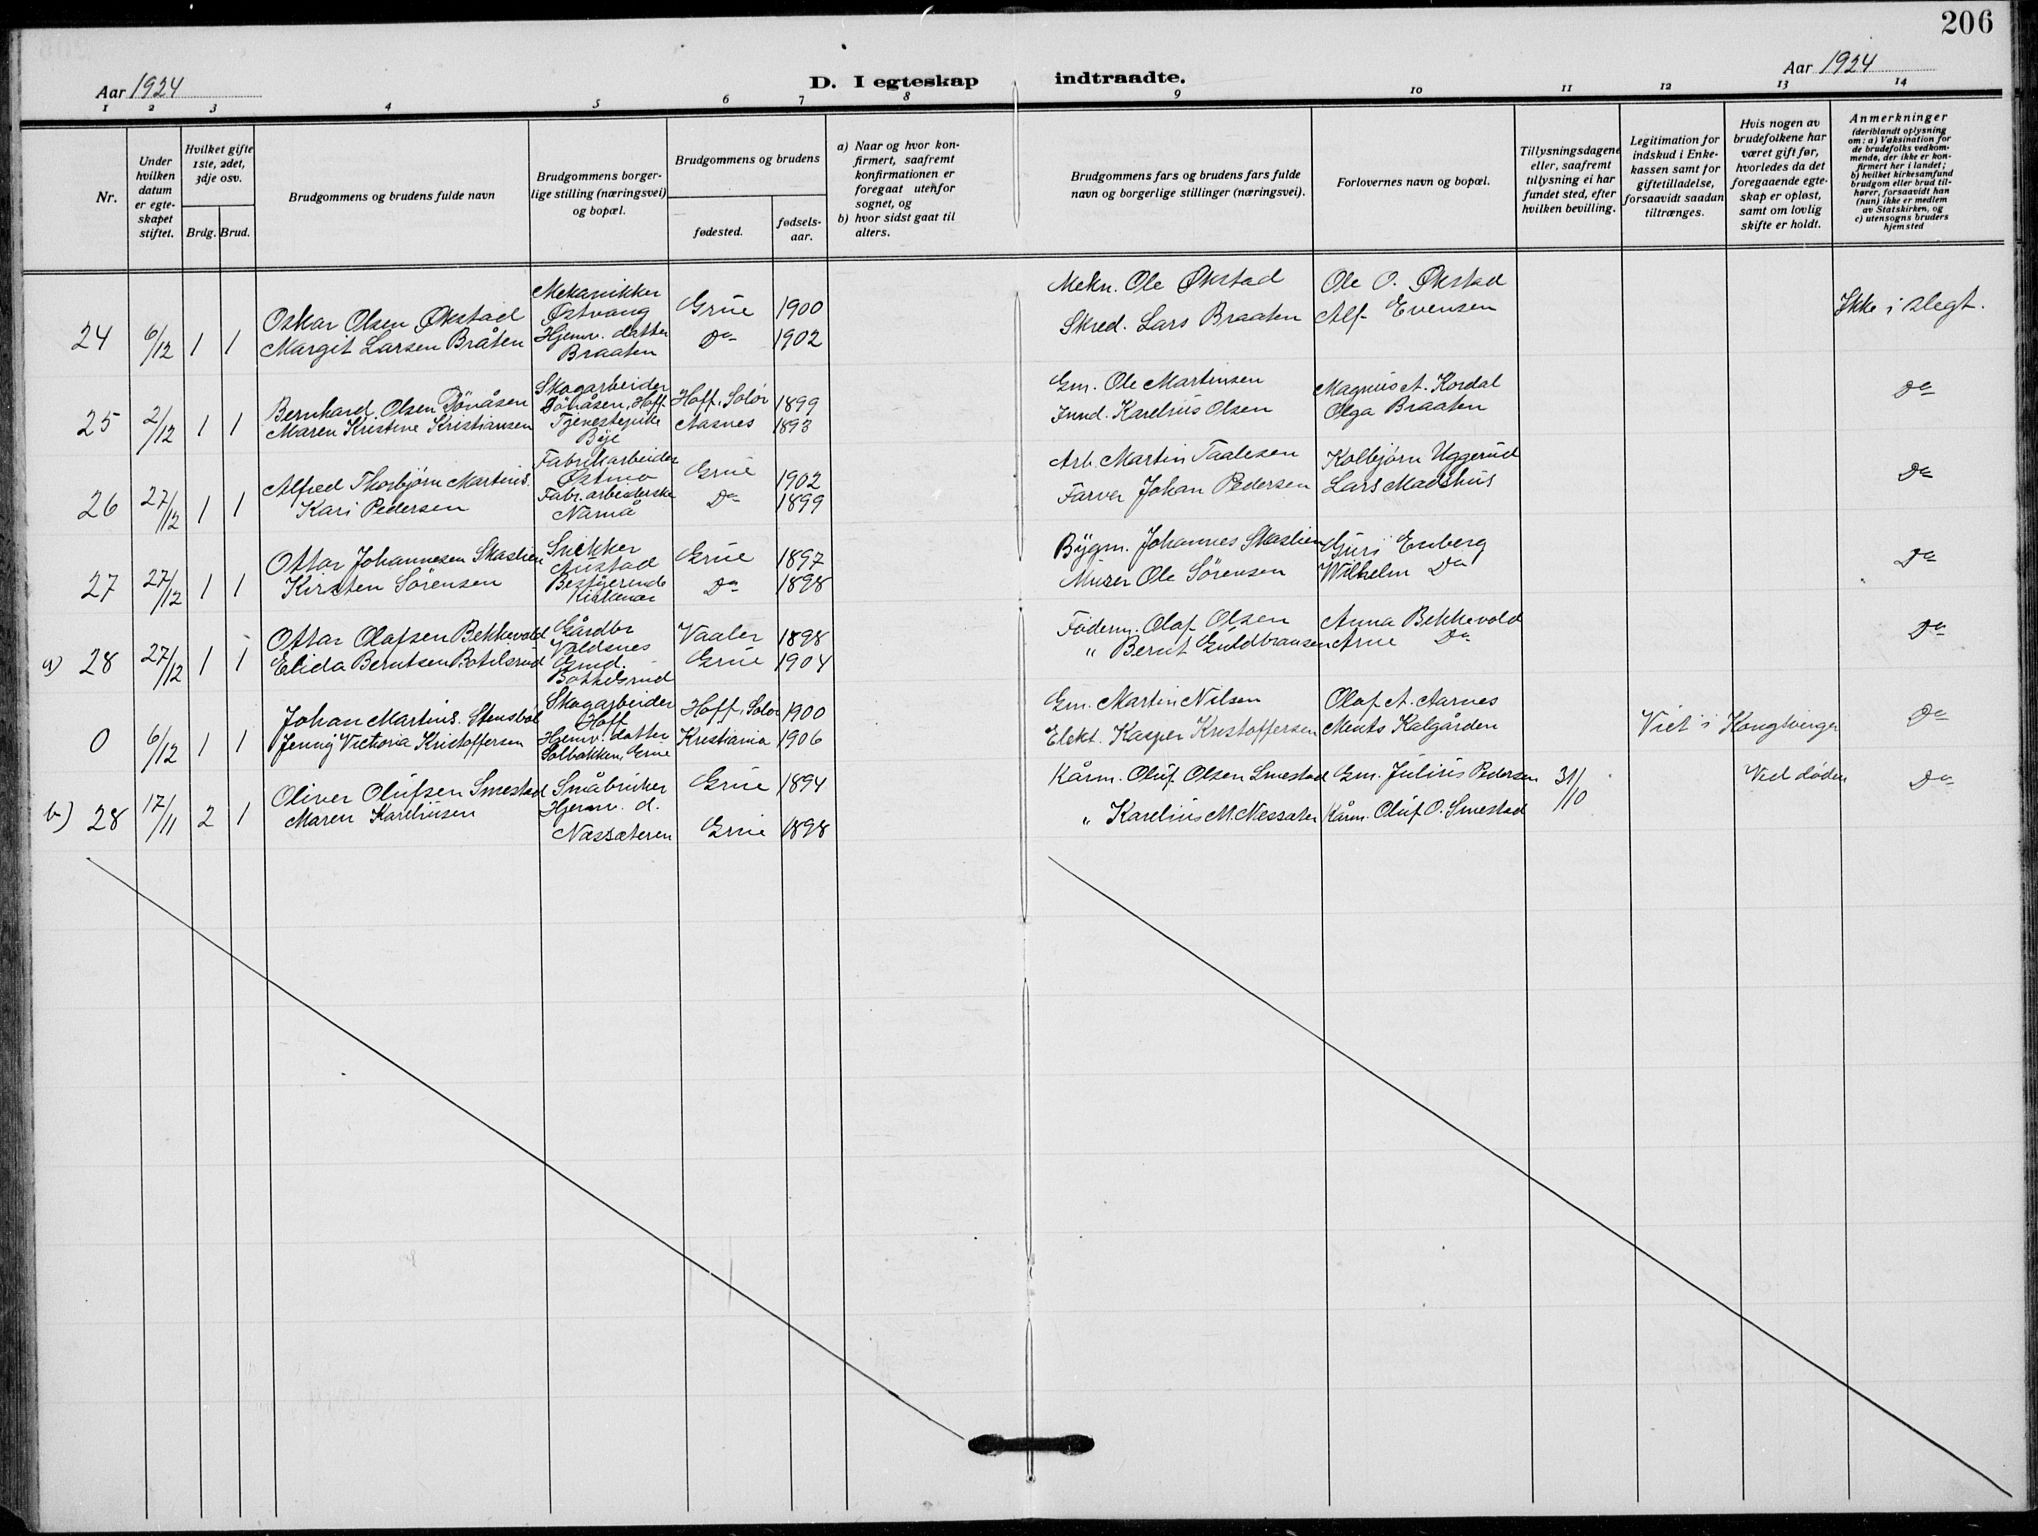 206
Aar 1924
D. I egteskap indtraadte.
Aar 1924
1 2 3 4 5 6 7 8 9 10 11 12 13 14
Nr.
Under hvilken datum er egteskapet stiftet.
Hvilket gifte 1ste, 2det, 3dje osv.
Brdg. Brud.
Brudgommens og brudens fulde navn
Brudgommens borgerlige stilling (næringsvei) og bopæl.
Brudgommens og brudens
fødested.
fødselsaar.
a) Naar og hvor konfirmert, saafremt konfirmationen er foregaat utenfor sognet, og
b) hvor sidst gaat til alters.
Brudgommens fars og brudens fars fulde navn og borgerlige stillinger (næringsvei).
Forlovernes navn og bopæl.
Tillysningsdagene eller, saafremt tillysning ei har fundet sted, efter hvilken bevilling.
Legitimation for indskud i Enkekassen samt for giftetilladelse, forsaavidt saadan tiltrænges.
Hvis nogen av brudefolkene har været gift før, hvorledes da det foregaaende egteskap er opløst, samt om lovlig skifte er holdt.
Anmerkninger
(deriblandt oplysning om: a) Vaksination for de brudefolks vedkommende, der ikke er konfirmert her i landet; b) hvilket kirkesamfund brudgom eller brud tilhører, forsaavidt han (hun) ikke er medlem av Statskirken, og c) utensogns bruders hjemsted
24 6/12 1 1 Oskar Olsen Økstad Mekanikker Østvang Grue 1900 Mekn. Ole Økstad Ole O. Økstad Ikke i slegt.
Margit Larsen Bråten Hjemv. datter Braaten Do 1902 Skred. Lars Braaten Alf Evensen
25 2/12 1 1 Bernhard Olsen Skogarbeider Hoff. Hoff, Solør 1899 Gm. Ole Martinsen Magnus A. Kordal Do
Maren Kristine Kristiansen Tjenestepike Bye Aasnes 1893 Innd. Karelius Olsen Olga Braaten
26 27/12 1 1 Alfred Thorbjørn Martins. Fabrikarbeider Østmo Grue 1902 Arb. Martin Taalesen Kolbjørn Uggerud Do
Kari Pedersen Fabr.arbeiderske Namnå Do 1899 Farver Johan Pedersen Lars Madshus
27 27/12 1 1 Ottar Johannesen Skaslien Snekker Grue 1897 Bygm. Johannes Skaslien Guri Enberg Do
Kirsten Sørensen Bestyrerinde Kirkenær Do 1898 Murer Ole Sørensen Wilhelm Do
a) 28 27/12 1 1 Ottar Olafsen Bekkevold Gårdbr Voldsnes Vaaler 1898 Föderm. Olaf Olsen Anna Bekkevold Do
Elida Berntsen Botilsrud Gmd. Grue 1904 „ Bernt Guldbransen Arne Do
0 6/12 1 1 Johan Martins. Stensbøl Skogarbeider Hoff Hoff, Solør 1900 Gm. Martin Nilsen Olaf A. Aarnes Viet i Kongsvinger Do
Jenny Victoria Kristoffersen Hjemv. datter Solbakken, Grue Kristiania 1906 Elekt. Kasper Kristoffersen Ments Kalgården
b) 28 17/11 2 1 Oliver Olufsen Smestad Småbruker Grue 1894 Kårm. Oluf Olsen Smestad Gm. Julius Pedersen 31/10 Ved døden Do
Maren Kareliusen Hjemv. d. Næssæteren Grue 1898 „ Karelius M. Næssæter Kårm. Oluf O. Smestad